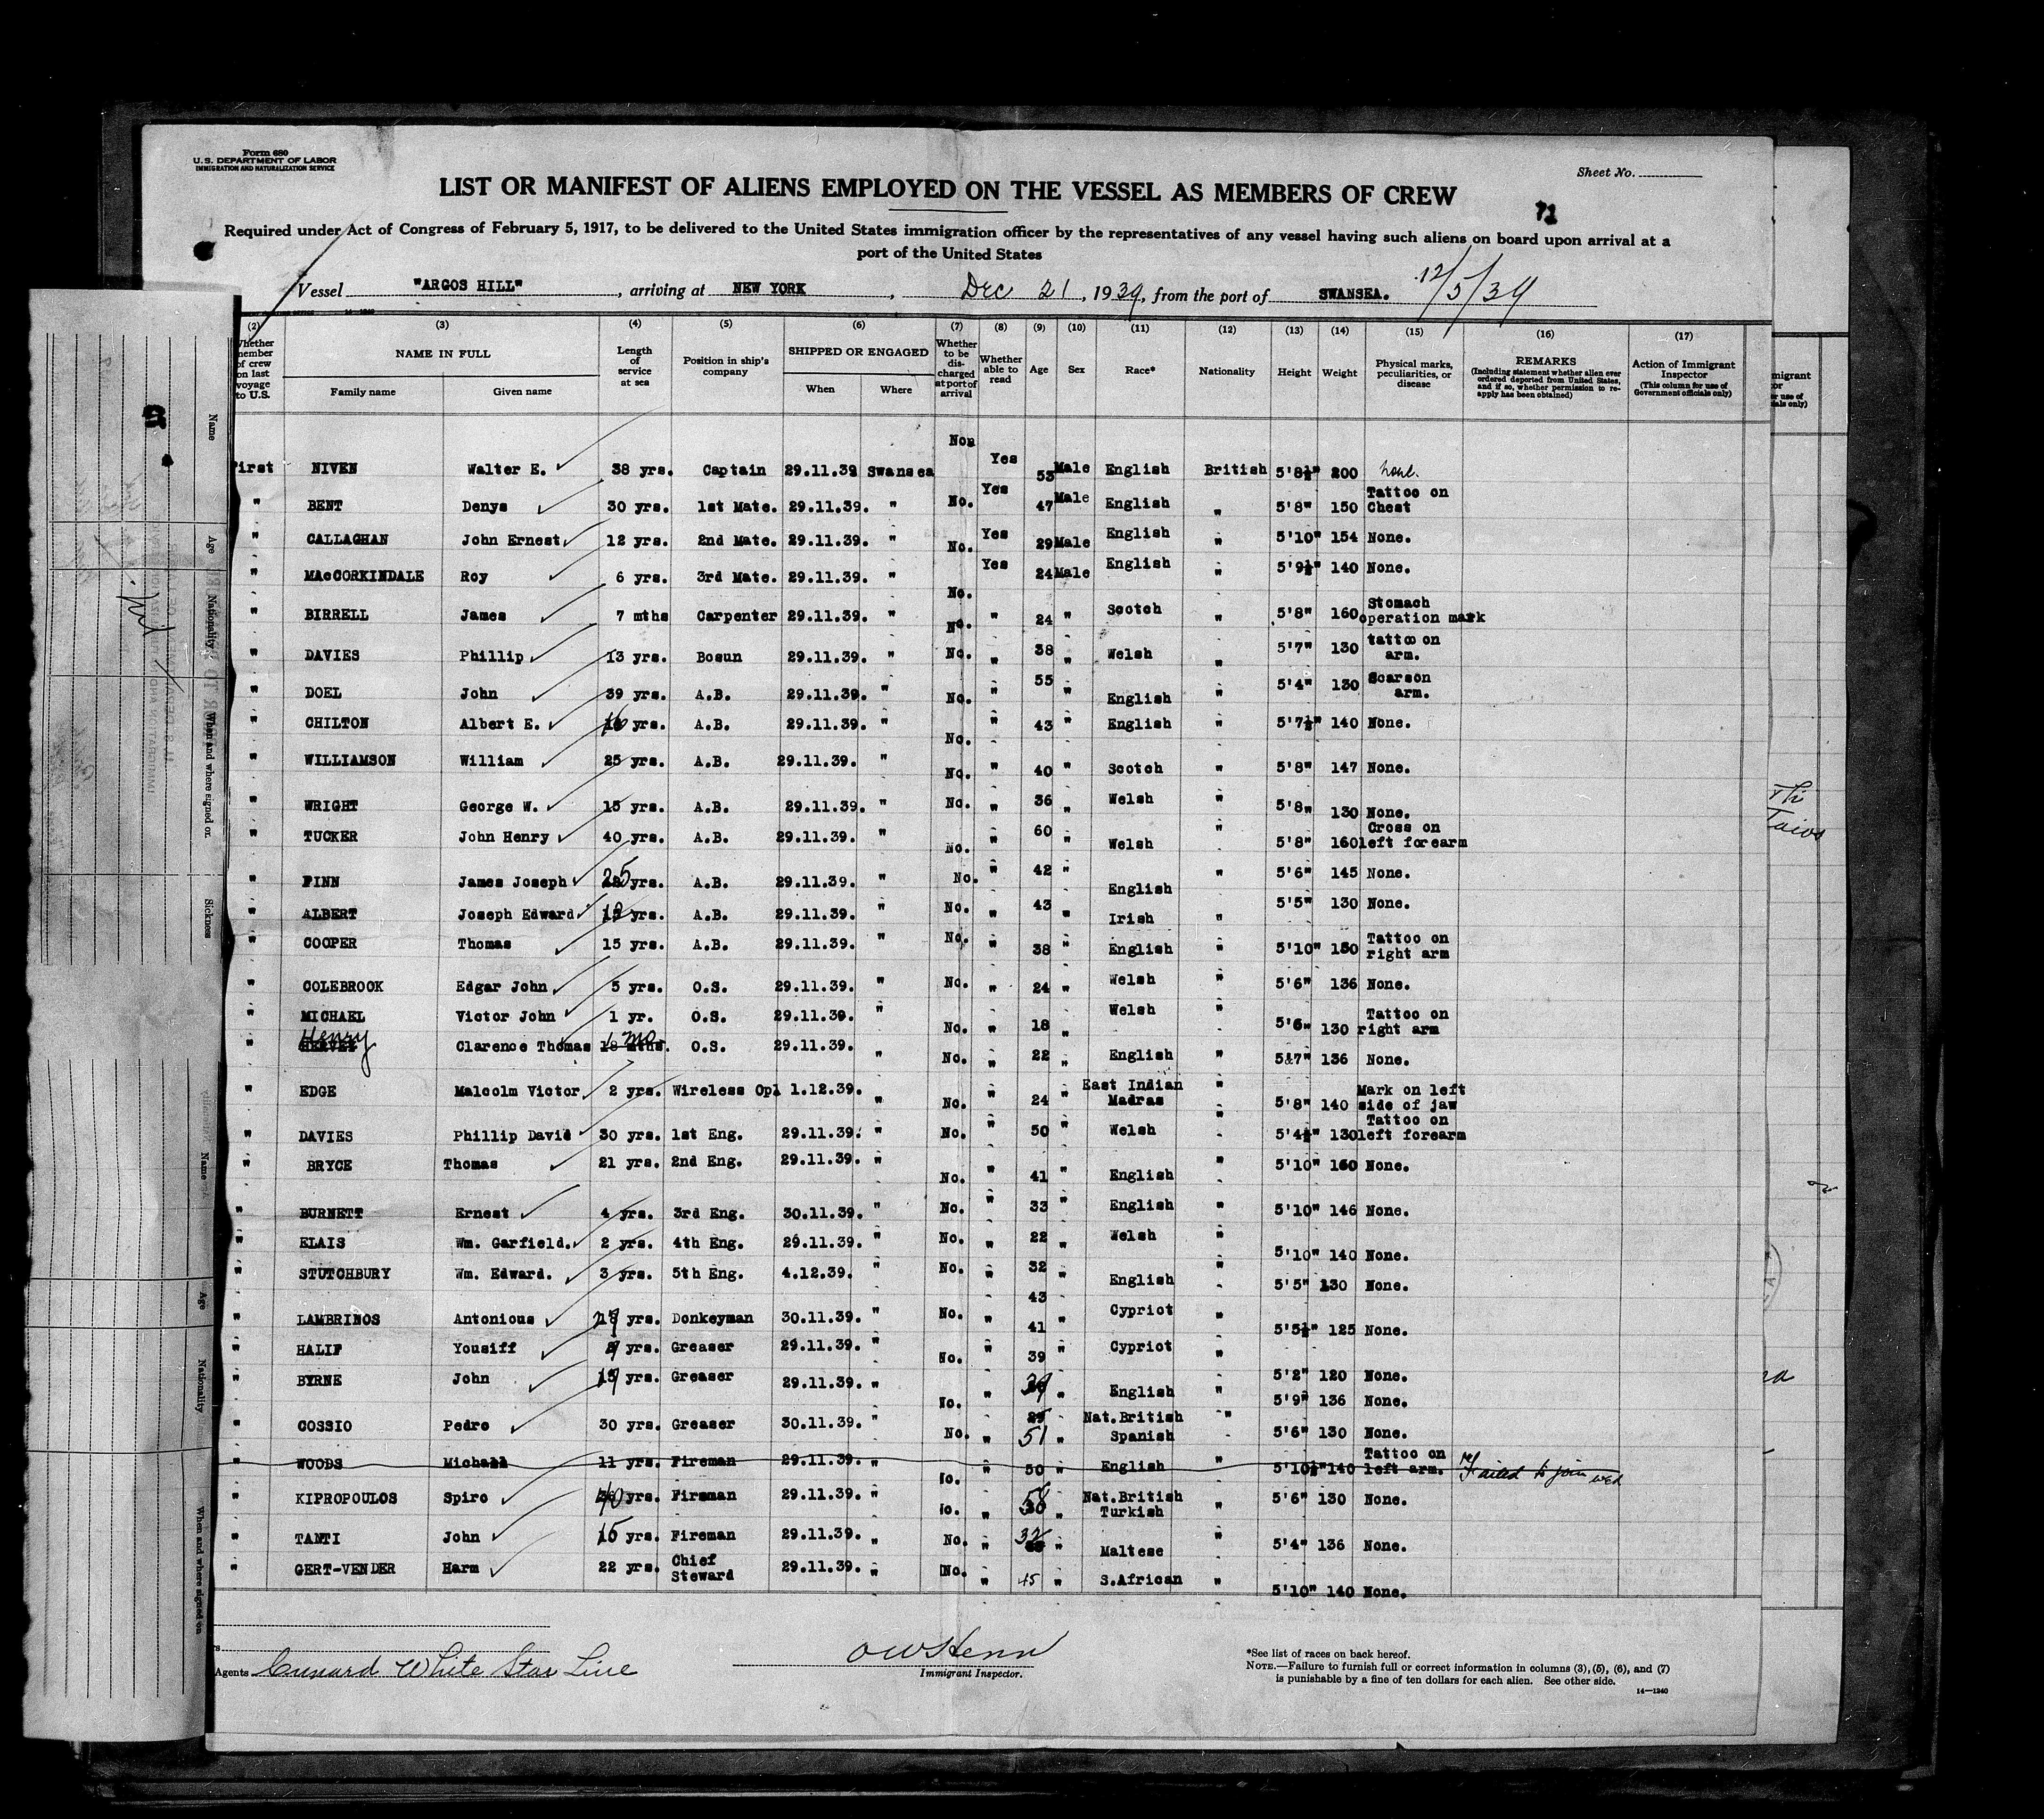 Form 680
U.S. DEPARTMENT OF LABOR
IMMIGRATION AND NATURALIZATION SERVICE
Sheet No.
LIST OR MANIFEST OF ALIENS EMPLOYED ON THE VESSEL AS MEMBERS OF CREW
71
Required under Act of Congress of February 5, 1917, to be delivered to the United States immigration officer by the representatives of any vessel having such aliens on board upon arrival at a
port of the United States
Vessel "ARGOS HILL", arriving at NEW YORK, Dec 21, 1939, from the port of SWANSEA. 12/5/39
(2) (3) (4) (5) (6) (7) (8) (9) (10) (11) (12) (13) (14) (15) (16) (17)
Whether member of crew on last voyage to U.S. NAME IN FULL Family name Given name Length of service at sea Position in ship's company SHIPPED OR ENGAGED When Where Whether to be discharged at port of arrival Whether able to read Age Sex Race* Nationality Height Weight Physical marks, peculiarities, or disease REMARKS (Including statement whether alien ever ordered deported from United States, and if so, whether permission to re-apply has been obtained) Action of Immigrant Inspector (This column for use of Government officials only)
First NIVEN Walter E. 38 yrs. Captain 29.11.39 Swansea Non Yes 53 Male English British 5'8½" 200 None.
" BENT Denys 30 yrs. 1st Mate. 29.11.39. " No. Yes 47 Male English " 5'8" 150 Tattoo on Chest
" CALLAGHAN John Ernest 12 yrs. 2nd Mate. 29.11.39. " No. Yes 29 Male English " 5'10" 154 None.
" MAcCORKINDALE Roy 6 yrs. 3rd Mate. 29.11.39. " No. Yes 24 Male English " 5'9½" 140 None.
" BIRRELL James 7 mths Carpenter 29.11.39. " No. " 24 " Scotch " 5'8" 160 Stomach operation mark
" DAVIES Phillip 13 yrs. Bosun 29.11.39. " No. " 38 " Welsh " 5'7" 130 tattoo on arm.
" DOEL John 39 yrs. A.B. 29.11.39. " No. " 55 " English " 5'4" 130 Scarson arm.
" CHILTON Albert E. yrs. A.B. 29.11.39. " No. " 43 " English " 5'7½" 140 None.
" WILLIAMSON William 25 yrs. A.B. 29.11.39. " No. " 40 " Scotch " 5'8" 147 None.
" WRIGHT George W. 15 yrs. A.B. 29.11.39. " No. " 36 " Welsh " 5'8" 130 None.
" TUCKER John Henry 40 yrs. A.B. 29.11.39. " No. " 60 " Welsh " 5'8" 160 Cross on left forearm
" FINN James Joseph 25 yrs. A.B. 29.11.39. " No. " 42 " English " 5'6" 145 None.
" ALBERT Joseph Edward yrs. A.B. 29.11.39. " No. " 43 " Irish " 5'5" 130 None.
" COOPER Thomas 15 yrs. A.B. 29.11.39. " No. " 38 " English " 5'10" 150 Tattoo on right arm
" COLEBROOK Edgar John 5 yrs. O.S. 29.11.39. " No. " 24 " Welsh " 5'6" 136 None.
" MICHAEL Victor John 1 yr. O.S. 29.11.39. " No. " 18 " Welsh 5'6" 130 Tattoo on right arm
" HERVEY Henry Clarence Thomas 18 mths. 1 mo O.S. 29.11.39. " No. " 22 " English " 5'7" 136 None.
" EDGE Malcolm Victor 2 yrs. Wireless Opl 1.12.39. " No. " 24 " East Indian Madras " 5'8" 140 Mark on left side of jaw
" DAVIES Phillip David 30 yrs. 1st Eng. 29.11.39. " No. " 50 " Welsh " 5'4½" 130 Tattoo on left forearm
" BRYCE Thomas 21 yrs. 2nd Eng. 29.11.39. " No. " 41 " English " 5'10" 160 None.
" BURNETT Ernest 4 yrs. 3rd Eng. 30.11.39. " No. " 33 " English " 5'10" 146 None.
" ELAIS Wm. Garfield. 2 yrs. 4th Eng. 29.11.39. " No. " 22 " Welsh " 5'10" 140 None.
" STUTCHBURY Wm. Edward. 3 yrs. 5th Eng. 4.12.39. " No. " 32 " English " 5'5" 130 None.
" LAMBRINOS Antonious yrs. Donkeyman 30.11.39. " No. " 43 41 " Cypriot " 5'5½" 125 None.
" HALIF Yousiff yrs. Greaser 29.11.39. " No. " 39 " Cypriot " 5'2" 120 None.
" BYRNE John yrs. Greaser 29.11.39. " No. " 39 " English " 5'9" 136 None.
" COSSIO Pedro 30 yrs. Greaser 30.11.39. " No. " 51 " Nat.British Spanish " 5'6" 130 None.
" WOODS Michall 11 yrs. Fireman 29.11.39. " No. " 50 " English " 5'10½" 140 Tattoo on left arm. Failed to join
" KIPROPOULOS Spiro 40 yrs. Fireman 29.11.39. " No. " 58 " Nat.British Turkish " 5'6" 130 None.
" TANTI John 15 yrs. Fireman 29.11.39. " No. " 32 " Maltese " 5'4" 136 None.
" GERT-VENDER Harm 22 yrs. Chief Steward 29.11.39. " No. " 45 " S.African " 5'10" 140 None.
Agents Cunard White Star Line
Immigrant Inspector.
*See list of races on back hereof.
NOTE.—Failure to furnish full or correct information in columns (3), (5), (6), and (7)
is punishable by a fine of ten dollars for each alien. See other side.
14—1240
Name
Age
Nationality
When and where signed on
Sickness
Name
Age
Nationality
When and where signed on